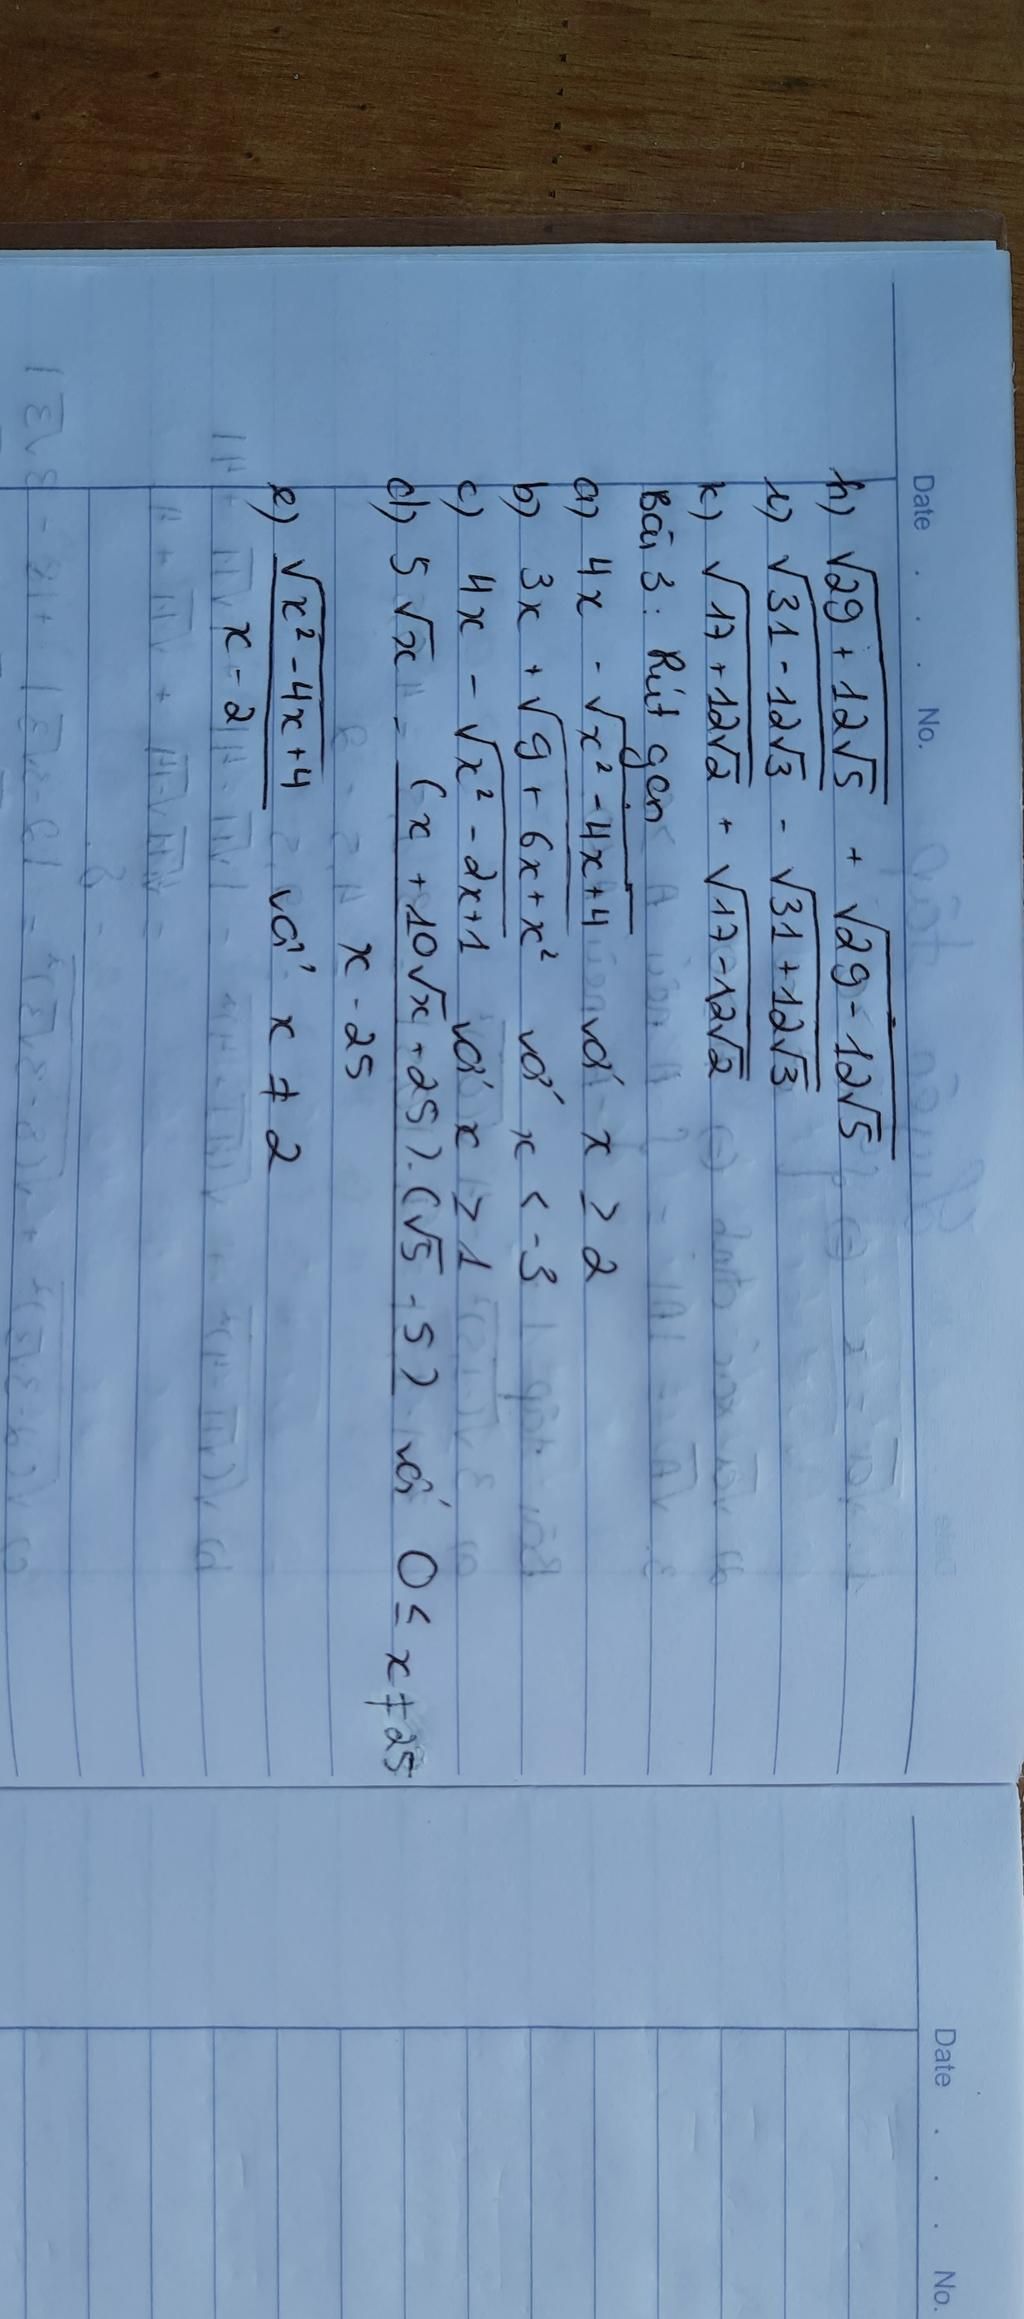 Date . . . No.
h) √29 + 12√5 + √29 - 12√5
i) √31 - 12√3 - √31 + 12√3
k) √17 + 12√2 + √17 - 12√2
Bài 3: Rút gọn
a) 4x - √x² - 4x + 4 với x ≥ 2
b) 3x + √9 + 6x + x² với x < -3
c) 4x - √x² - 2x + 1 với x ≥ 1
d) 5√x - (x + 10√x + 25).(√5 - 5) với 0 ≤ x ≠ 25
x - 25
e) √x² - 4x + 4 với x ≠ 2
x - 2
Date . . . No.